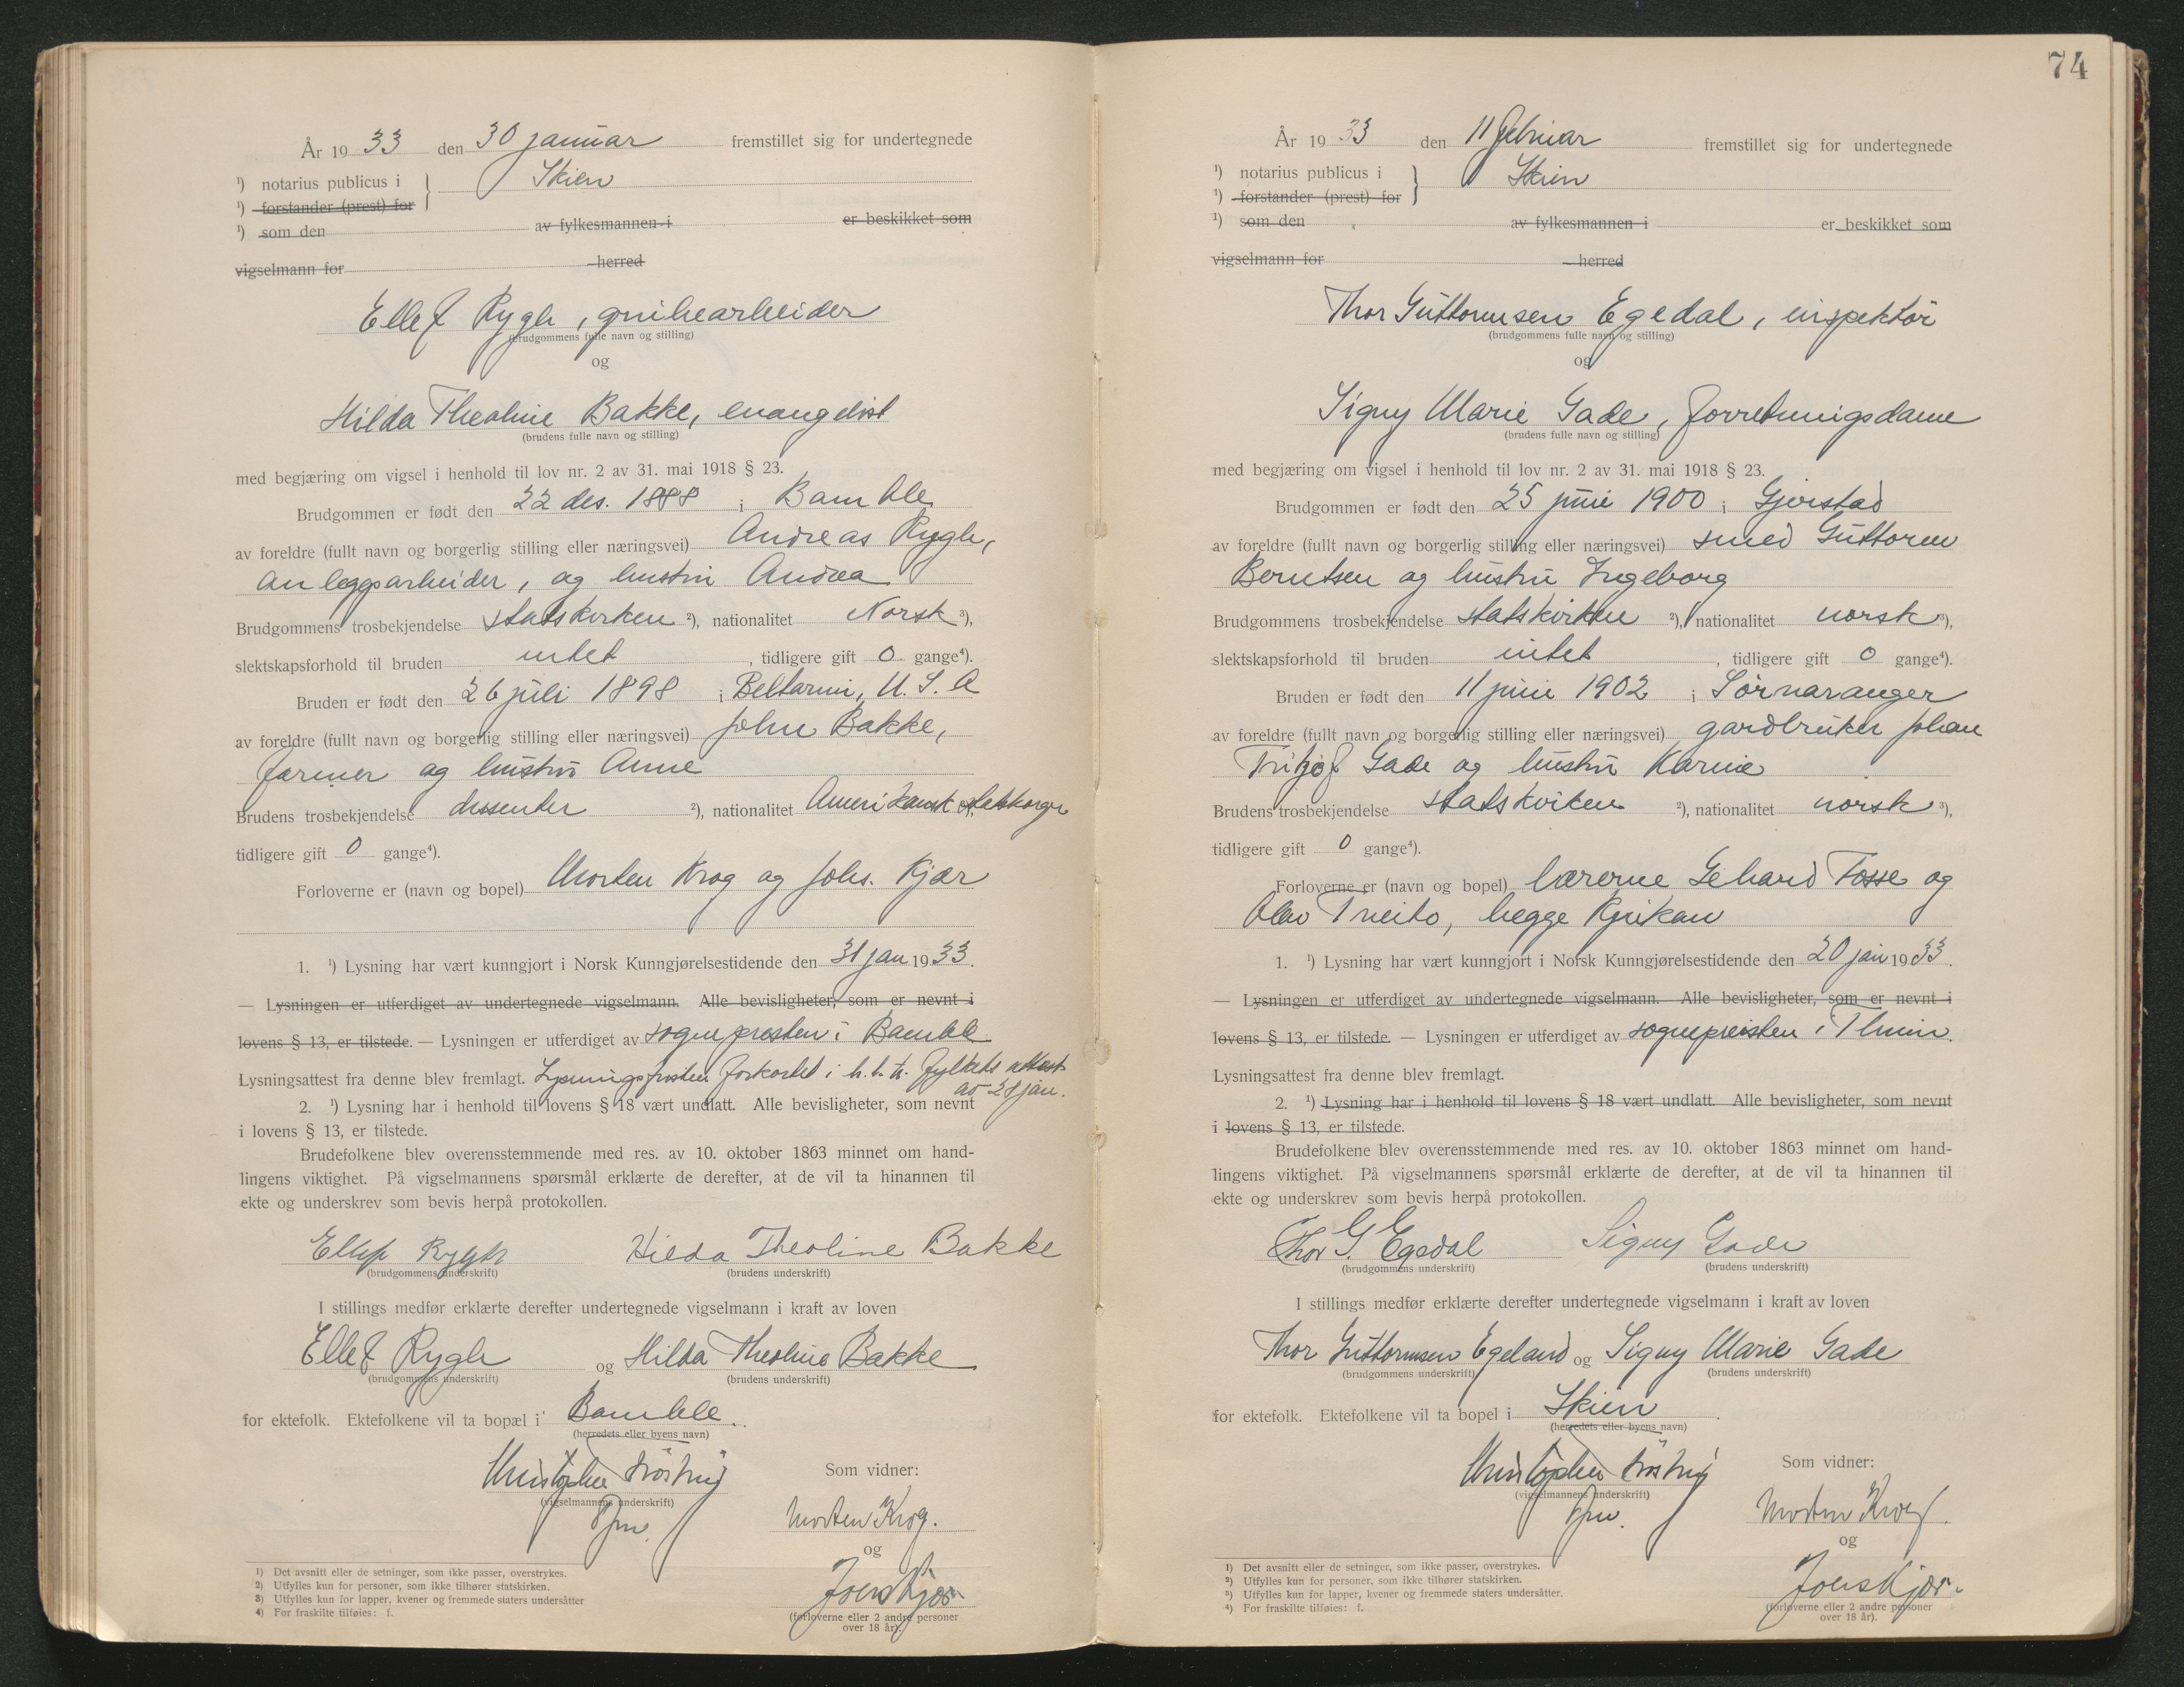 År 1933 den 30 januar fremstillet sig for undertegnede
¹) notarius publicus i } Skien
¹) forstander (prest) for
¹) som den av fylkesmannen i er beskikket som
vigselmann for herred
Ellef Rygh, gruvearbeider
(brudgommens fulle navn og stilling)
og
Hilda Theoline Bakke, evangelist
(brudens fulle navn og stilling)
med begjæring om vigsel i henhold til lov nr. 2 av 31. mai 1918 § 23.
Brudgommen er født den 22 des. 1888 i Bamble
av foreldre (fullt navn og borgerlig stilling eller næringsvei) Andreas Rygh,
anleggsarbeider, og hustru Andrea
Brudgommens trosbekjendelse statskirken ²), nationalitet Norsk ³),
slektskapsforhold til bruden intet , tidligere gift 0 gange⁴).
Bruden er født den 26 juli 1898 i U.S.A
av foreldre (fullt navn og borgerlig stilling eller næringsvei) John Bakke,
farmer og hustru Anne
Brudens trosbekjendelse dissenter ²), nationalitet Amerikansk statsborger
tidligere gift 0 gange⁴).
Forloverne er (navn og bopel) Morten Krog og Johs. Kjær
1. ¹) Lysning har vært kunngjort i Norsk Kunngjørelsestidende den 31 jan 1933.
— Lysningen er utferdiget av undertegnede vigselmann. Alle bevisligheter, som er nevnt i
lovens § 13, er tilstede. — Lysningen er utferdiget av sognepresten i Bamble
Lysningsattest fra denne blev fremlagt. Lysningsfristen forkortet i h.t. fylkets attest
av 28 jan.
2. ¹) Lysning har i henhold til lovens § 18 vært undlatt. Alle bevisligheter, som nevnt
i lovens § 13, er tilstede.
Brudefolkene blev overensstemmende med res. av 10. oktober 1863 minnet om hand-
lingens viktighet. På vigselmannens spørsmål erklærte de derefter, at de vil ta hinannen til
ekte og underskrev som bevis herpå protokollen.
Ellef Rygh Hilda Theoline Bakke
(brudgommens underskrift) (brudens underskrift)
I stillings medfør erklærte derefter undertegnede vigselmann i kraft av loven
Ellef Rygh og Hilda Theoline Bakke
(brudgommens underskrift) (brudens underskrift)
for ektefolk. Ektefolkene vil ta bopæl i Bamble.
(herredets eller byens navn)
Christopher
(vigselmannens underskrift)
Som vidner:
Morten Krog.
og
Johs Kjær
(forloverne eller 2 andre personer
over 18 år).
1) Det avsnitt eller de setninger, som ikke passer, overstrykes.
2) Utfylles kun for personer, som ikke tilhører statskirken.
3) Utfylles kun for lapper, kvener og fremmede staters undersåtter
4) For fraskilte tilføies: f.
74
År 1933 den 11 februar fremstillet sig for undertegnede
¹) notarius publicus i } Skien
¹) forstander (prest) for
¹) som den av fylkesmannen i er beskikket som
vigselmann for herred
Thor Guttormsen Egedal, inspektør
(brudgommens fulle navn og stilling)
og
Signy Marie Gade, forretningsdame
(brudens fulle navn og stilling)
med begjæring om vigsel i henhold til lov nr. 2 av 31. mai 1918 § 23.
Brudgommen er født den 25 juni 1900 i Gjerstad
av foreldre (fullt navn og borgerlig stilling eller næringsvei) smed Guttorm
Berntsen og hustru Ingeborg
Brudgommens trosbekjendelse statskirken ²), nationalitet norsk ³),
slektskapsforhold til bruden intet , tidligere gift 0 gange⁴).
Bruden er født den 11 juni 1902 i Sørvaranger
av foreldre (fullt navn og borgerlig stilling eller næringsvei) gardbruker Johan
Fritjof Gade og hustru Karine
Brudens trosbekjendelse statskirken ²), nationalitet norsk ³),
tidligere gift 0 gange⁴).
Forloverne er (navn og bopel) lærerne Gehard Fosse og
Olav Tveito, begge Rjukan
1. ¹) Lysning har vært kunngjort i Norsk Kunngjørelsestidende den 20 jan 1933.
— Lysningen er utferdiget av undertegnede vigselmann. Alle bevisligheter, som er nevnt i
lovens § 13, er tilstede. — Lysningen er utferdiget av sognepresten i
Lysningsattest fra denne blev fremlagt.
2. ¹) Lysning har i henhold til lovens § 18 vært undlatt. Alle bevisligheter, som nevnt
i lovens § 13, er tilstede.
Brudefolkene blev overensstemmende med res. av 10. oktober 1863 minnet om hand-
lingens viktighet. På vigselmannens spørsmål erklærte de derefter, at de vil ta hinannen til
ekte og underskrev som bevis herpå protokollen.
Thor G. Egedal Signy Gade
(brudgommens underskrift) (brudens underskrift)
I stillings medfør erklærte derefter undertegnede vigselmann i kraft av loven
Thor Guttormsen Egeland og Signy Marie Gade
(brudgommens underskrift) (brudens underskrift)
for ektefolk. Ektefolkene vil ta bopel i Skien.
(herredets eller byens navn)
Christopher
(vigselmannens underskrift)
Som vidner:
Morten Krog.
og
Johs Kjær.
(forloverne eller 2 andre personer
over 18 år).
1) Det avsnitt eller de setninger, som ikke passer, overstrykes.
2) Utfylles kun for personer, som ikke tilhører statskirken.
3) Utfylles kun for lapper, kvener og fremmede staters undersåtter.
4) For fraskilte tilføies: f.